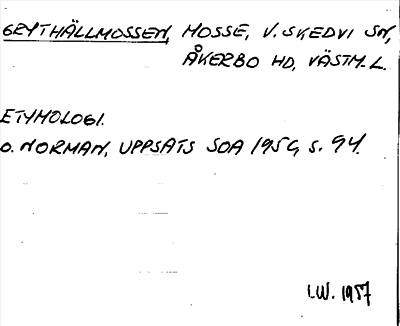 GRYTHÄLLMOSSEN, MOSSE, V. SKEDVI SN,
ÅKERBO HD, VÄSTM. L.
ETYMOLOGI.
O. NORMAN, UPPSATS SOA 1956, s. 94.
I.W. 1957